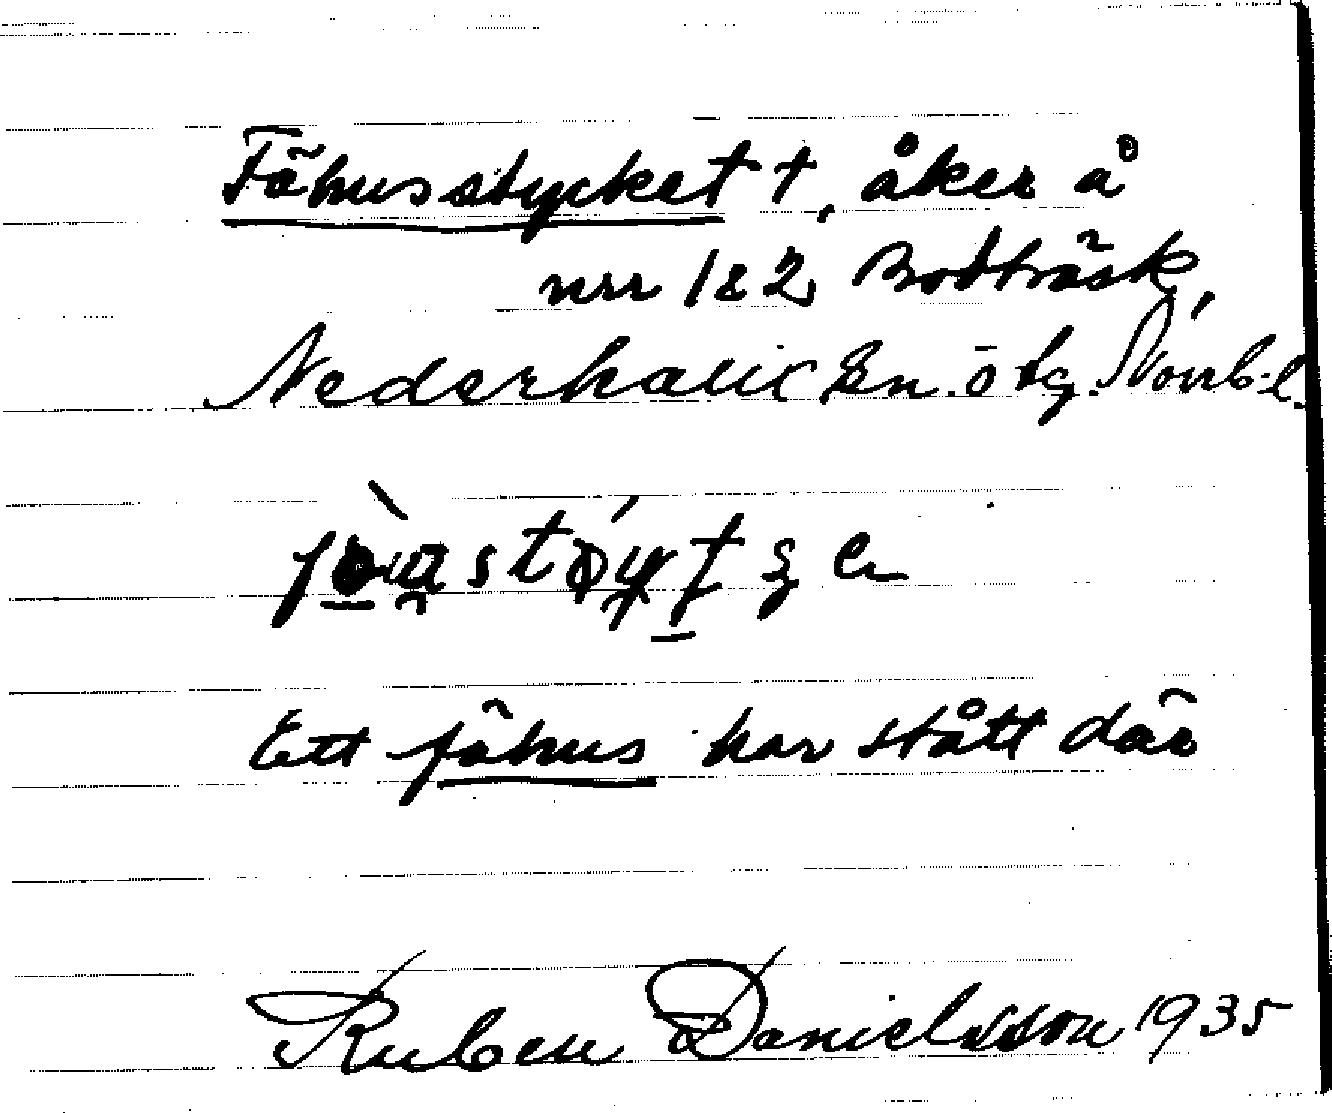 Fähusstycket †, åker å
nrr 1 & 2 Bodträsk,
Nederkalix sn. ö tg. Norrb. l.
Ett fähus har stått där
Ruben Danielsson 1935